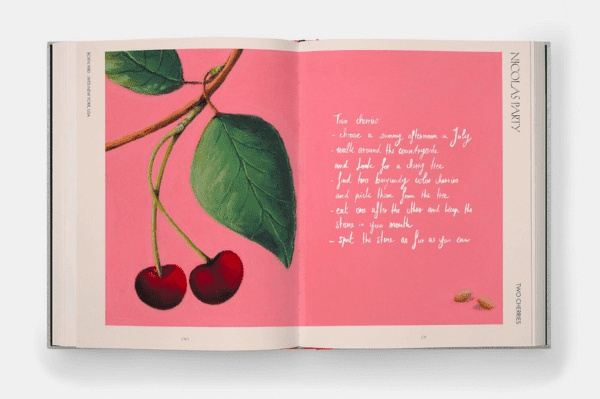 BORN 1980 LIVES NEW YORK, USA
Two cherries
- choose a sunny afternoon in July
- walk around the countryside
and look for a cherry tree
find two burgundy color cherries
and pick them from the tree
- eat one after the other and keep the
stones in your mouth
- spit the stone as far as you can
NICOLAS PARTY
TWO CHERRIES